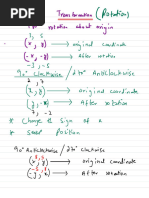 Transformation (Rotation)
* rotation about origin
3, 5
(x, y) → original coordinate
(-x, -y) → After rotation
-3, -5
90° Clockwise / 270° Anticlockwise
(x, y) → original coordinate
(y, -x) → After rotation
* Change the sign of x
* Swap Position
90° Anticlockwise / 270 clockwise
(x, y) → original coordinate
(-y, x) → After rotation